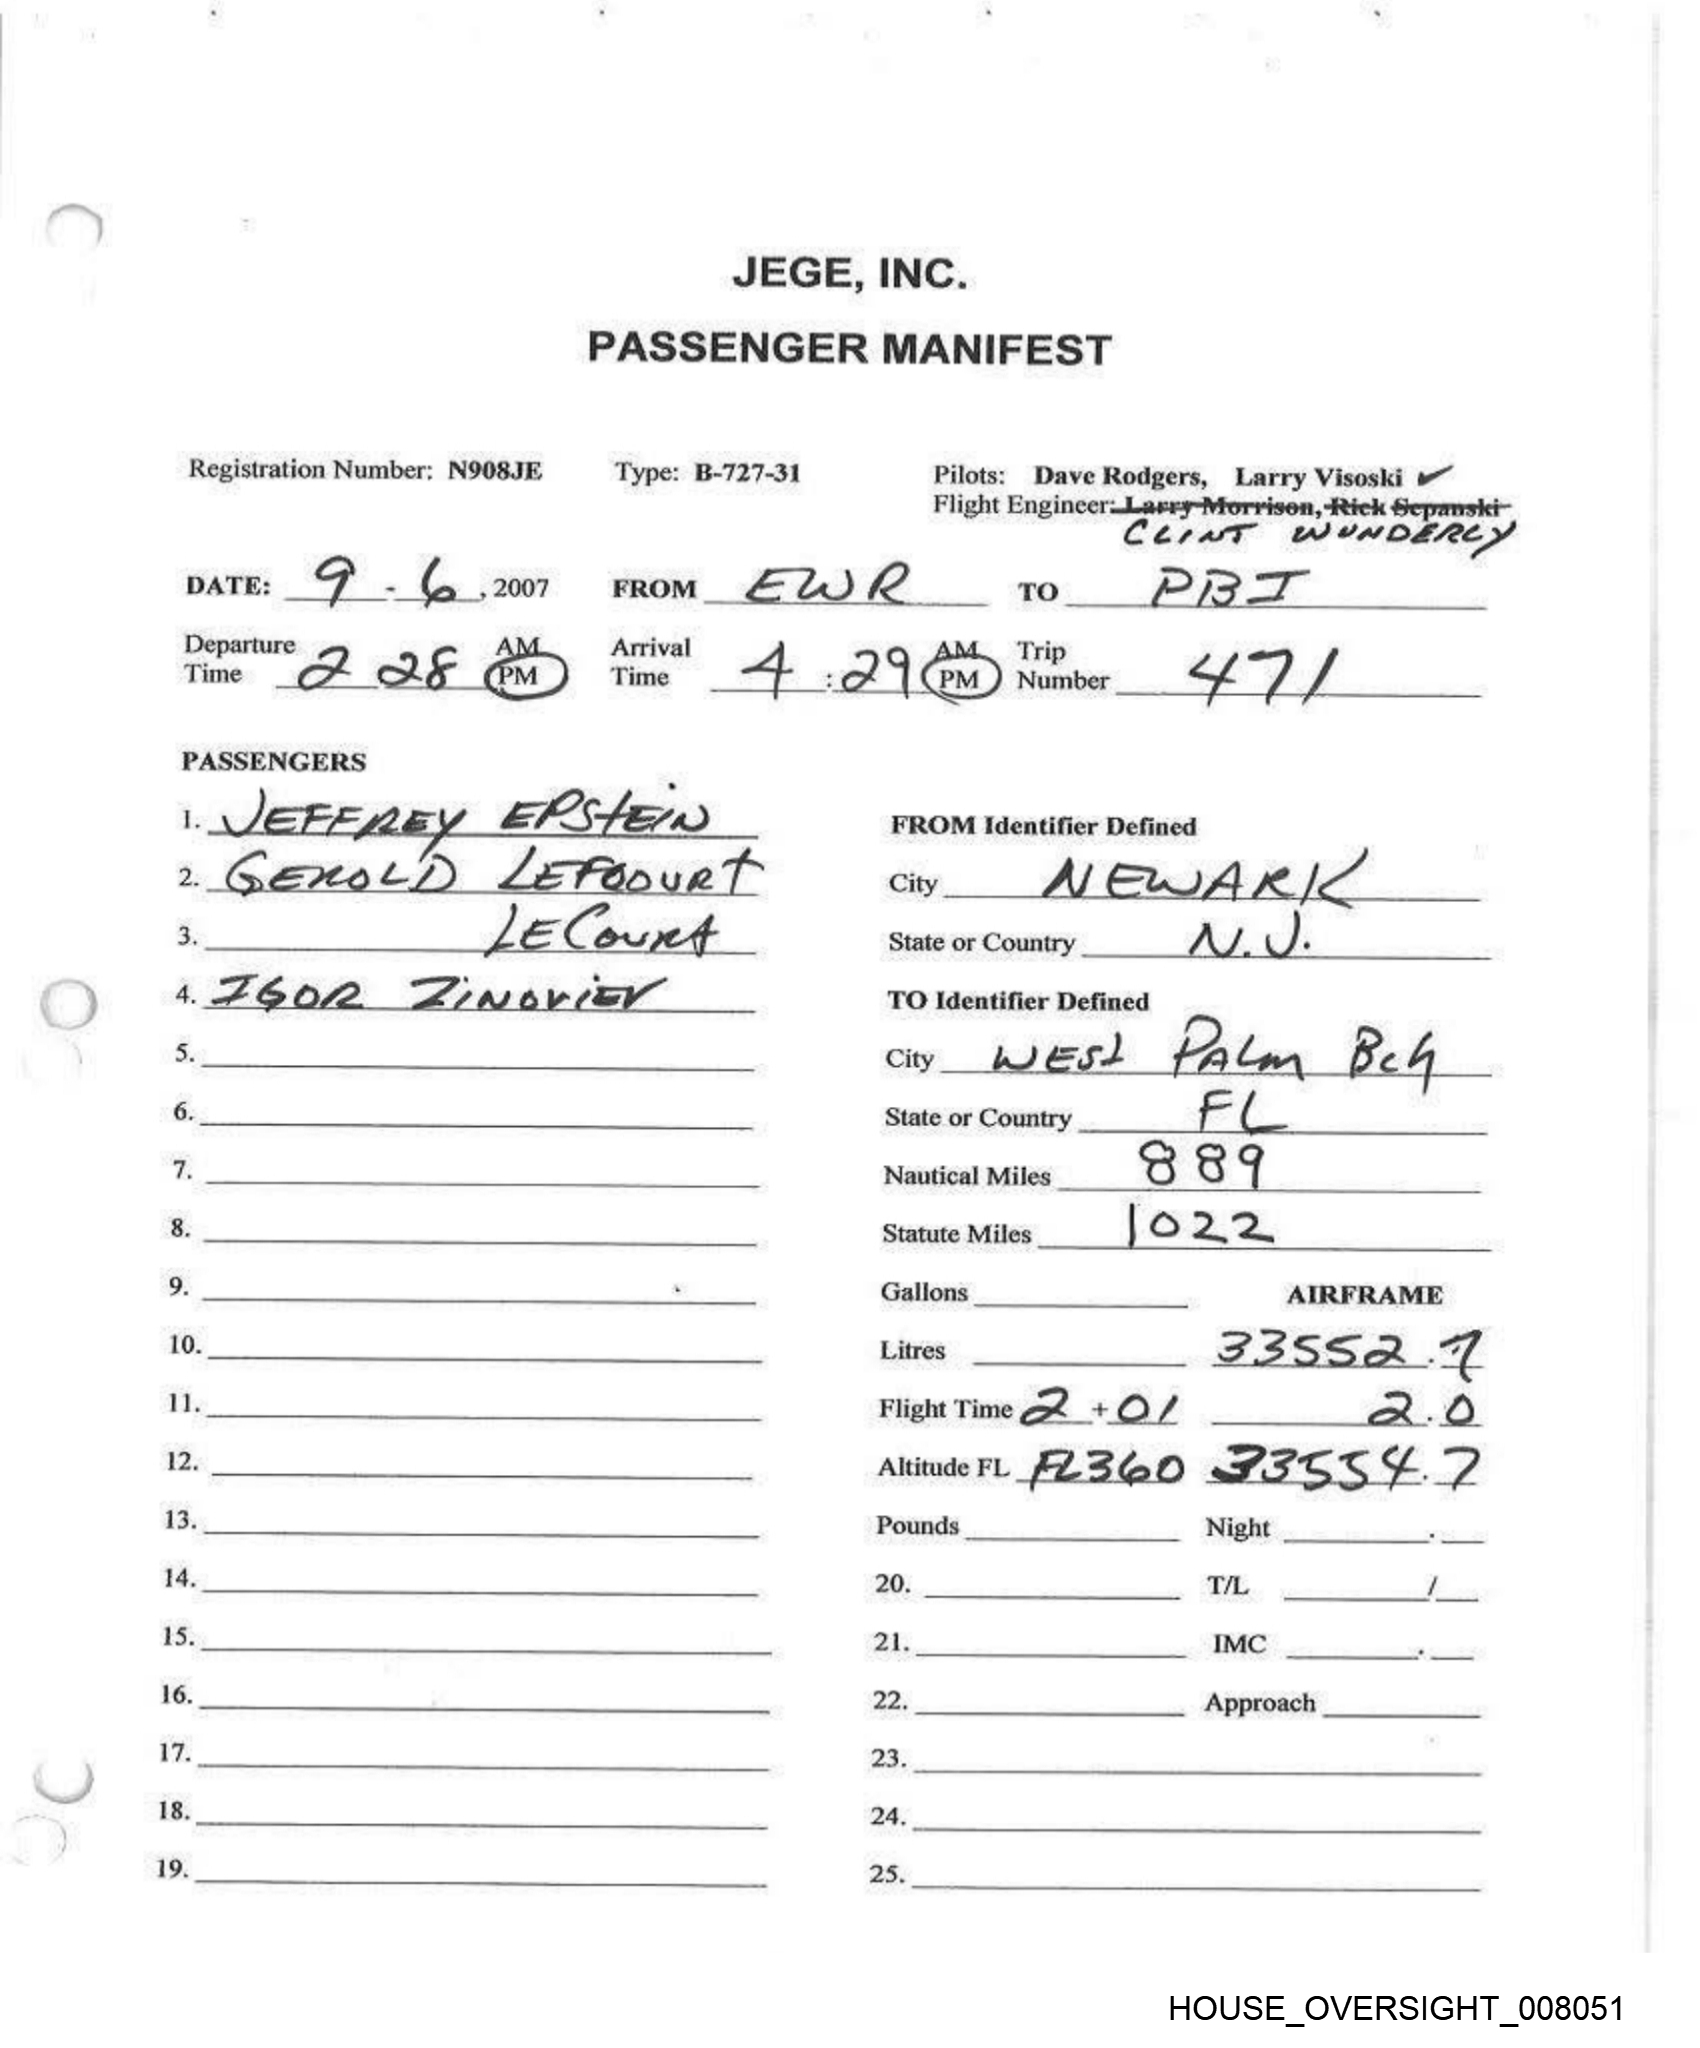 JEGE, INC.
PASSENGER MANIFEST
Registration Number: N908JE Type: B-727-31 Pilots: Dave Rodgers, Larry Visoski ✓
Flight Engineer: Larry Morrison, Rick Sepanski
CLINT WUNDERLY
DATE: 9 - 6, 2007 FROM EWR TO PBI
Departure Time 2 28 AM PM Arrival Time 4 : 29 AM PM Trip Number 471
PASSENGERS
1. JEFFREY EPSTEIN
2. GEROLD LEFCOURT
3. LECOURT
4. IGOR ZINOVIEV
5.
6.
7.
8.
9.
10.
11.
12.
13.
14.
15.
16.
17.
18.
19.
FROM Identifier Defined
City NEWARK
State or Country N.J.
TO Identifier Defined
City WEST PALM BCH
State or Country FL
Nautical Miles 889
Statute Miles 1022
Gallons AIRFRAME
Litres 33552.7
Flight Time 2 + 01 2.0
Altitude FL FL360 33554.7
Pounds Night .
20. T/L /
21. IMC .
22. Approach
23.
24.
25.
HOUSE_OVERSIGHT_008051